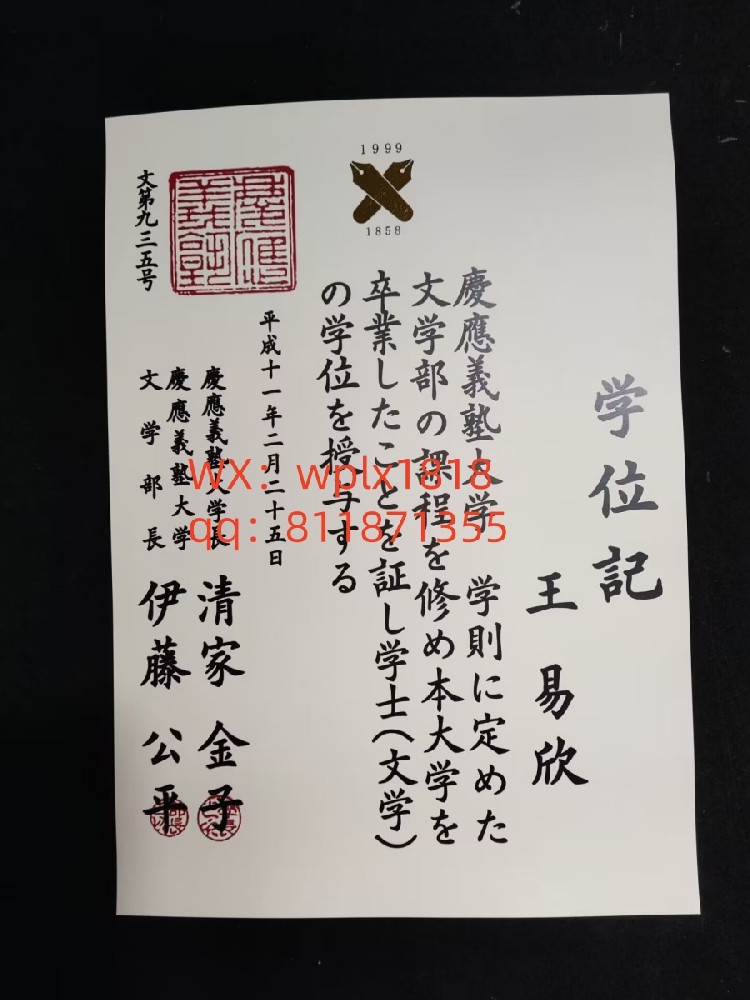 学位記
王易欣
慶應義塾大学 学則に定めた
文学部の課程を修め本大学を
卒業したことを証し学士(文学)
の学位を授与する
平成十一年二月二十五日
慶應義塾大学長 清家 金子
慶應義塾大学
文学部長 伊藤 公平
文第九三五号
1999
1858
WX: wplx1818
qq: 811871355